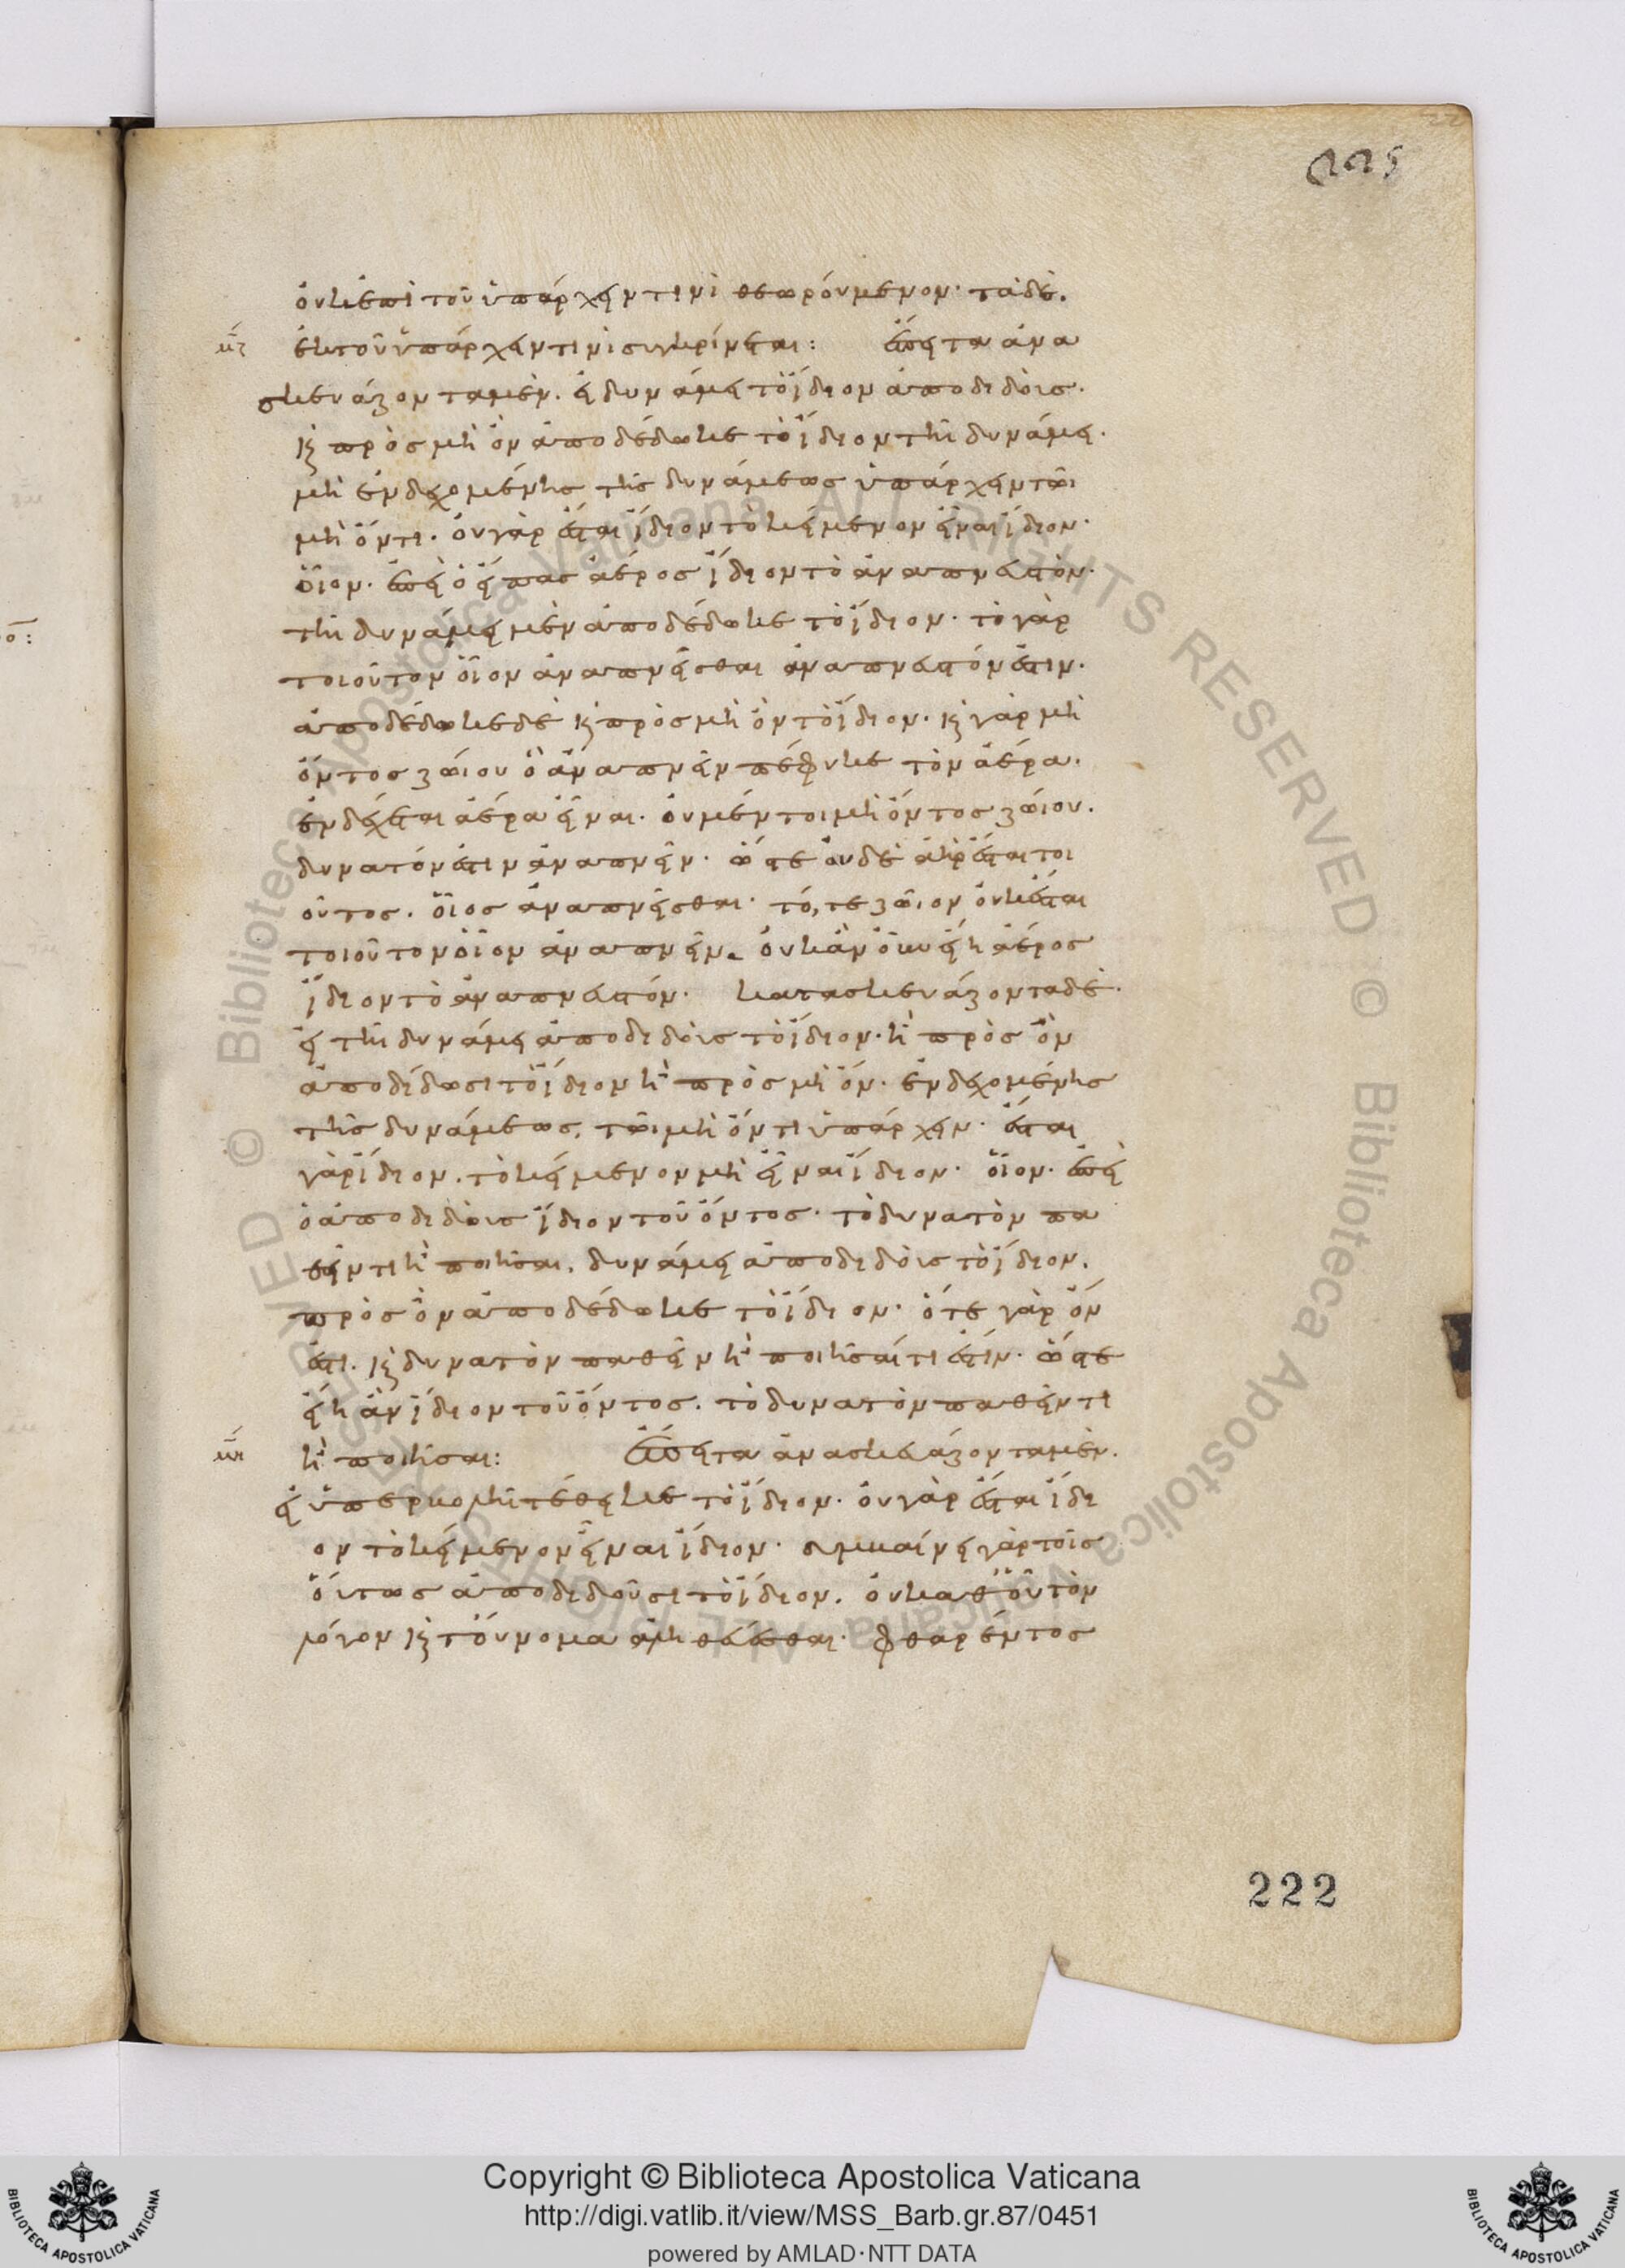 225
οὐκ ἐπὶ τοῦ ὑπάρχειν τινὶ θεωρούμενον· τὰ δὲ.
μζ ἐκ τοῦ ὑπάρχειν τινὶ συγκρίνεται: ἔπειτα ἀνα
σκευάζοντα μὲν. εἰ δυνάμει τὸ ἴδιον ἀποδιδοὺς.
καὶ πρὸς μὴ ὂν ἀποδέδωκε τὸ ἴδιον τῆι δυνάμει.
μὴ ἐνδεχομένης τῆς δυνάμεως ὑπάρχειν τῶι
μὴ ὄντι. οὐ γὰρ ἔσται ἴδιον τὸ κείμενον εἶναι ἴδιον·
οἷον. ἐπεὶ ὁ εἴπας ἀέρος ἴδιον τὸ ἀναπνευστόν·
τῆι δυνάμει μὲν ἀποδέδωκε τὸ ἴδιον· τὸ γὰρ
τοιοῦτον οἷον ἀναπνεῖσθαι ἀναπνευστόν ἐστιν.
ἀποδέδωκε δὲ καὶ πρὸς μὴ ὂν τὸ ἴδιον· καὶ γὰρ μὴ
ὄντος ζώιου ὃ ἀναπνεῖν πέφυκε τὸν ἀέρα.
ἐνδέχεται ἀέρα εἶναι. οὐ μέντοι μὴ ὄντος ζώιου.
δυνατόν ἐστιν ἀναπνεῖν· ὥστε οὐδὲ ἀὴρ ἔσται τοι
οῦτος. οἷος ἀναπνεῖσθαι· τό, τε ζῶιον οὐκ ἔσται
τοιοῦτον οἷον ἀναπνεῖν. οὐκ ἂν οὖν εἴη ἀέρος
ἴδιον τὸ ἀναπνευστόν. κατασκευάζοντα δὲ.
εἰ τῆι δυνάμει ἀποδιδοὺς τὸ ἴδιον· ἢ πρὸς ὂν
ἀποδίδωσι τὸ ἴδιον ἢ πρὸς μὴ ὄν. ἐνδεχομένης
τῆς δυνάμεως, τῶι μὴ ὄντι ὑπάρχειν· ἔσται
γὰρ ἴδιον. τὸ κείμενον μὴ εἶναι ἴδιον· οἷον. ἐπεὶ
ὁ ἀποδιδοὺς ἴδιον τοῦ ὄντος· τὸ δυνατὸν πα
θεῖν τι ἢ ποιῆσαι, δυνάμει ἀποδιδοὺς τὸ ἴδιον.
πρὸς ὂν ἀποδέδωκε τὸ ἴδιον· ὅτε γὰρ ὄν
ἐστι. καὶ δυνατὸν παθεῖν ἢ ποιῆσαί τι ἐστίν· ὥστε
εἴη ἂν ἴδιον τοῦ ὄντος. τὸ δυνατὸν παθεῖν τι
μη ἢ ποιῆσαι: ἔπειτα ἀνασκευάζοντα μὲν.
εἰ ὑπερβολῆι τέθεικε τὸ ἴδιον· οὐ γὰρ ἔσται ἴδι
ον τὸ κείμενον εἶναι ἴδιον· συμβαίνει γὰρ τοῖς
οὕτως ἀποδιδοῦσι τὸ ἴδιον. οὐ καθ' οὗ τὸν
λόγον καὶ τοὔνομα ἀληθεύεσθαι· φθαρέντος
222
Copyright © Biblioteca Apostolica Vaticana
http://digi.vatlib.it/view/MSS_Barb.gr.87/0451
powered by AMLAD·NTT DATA